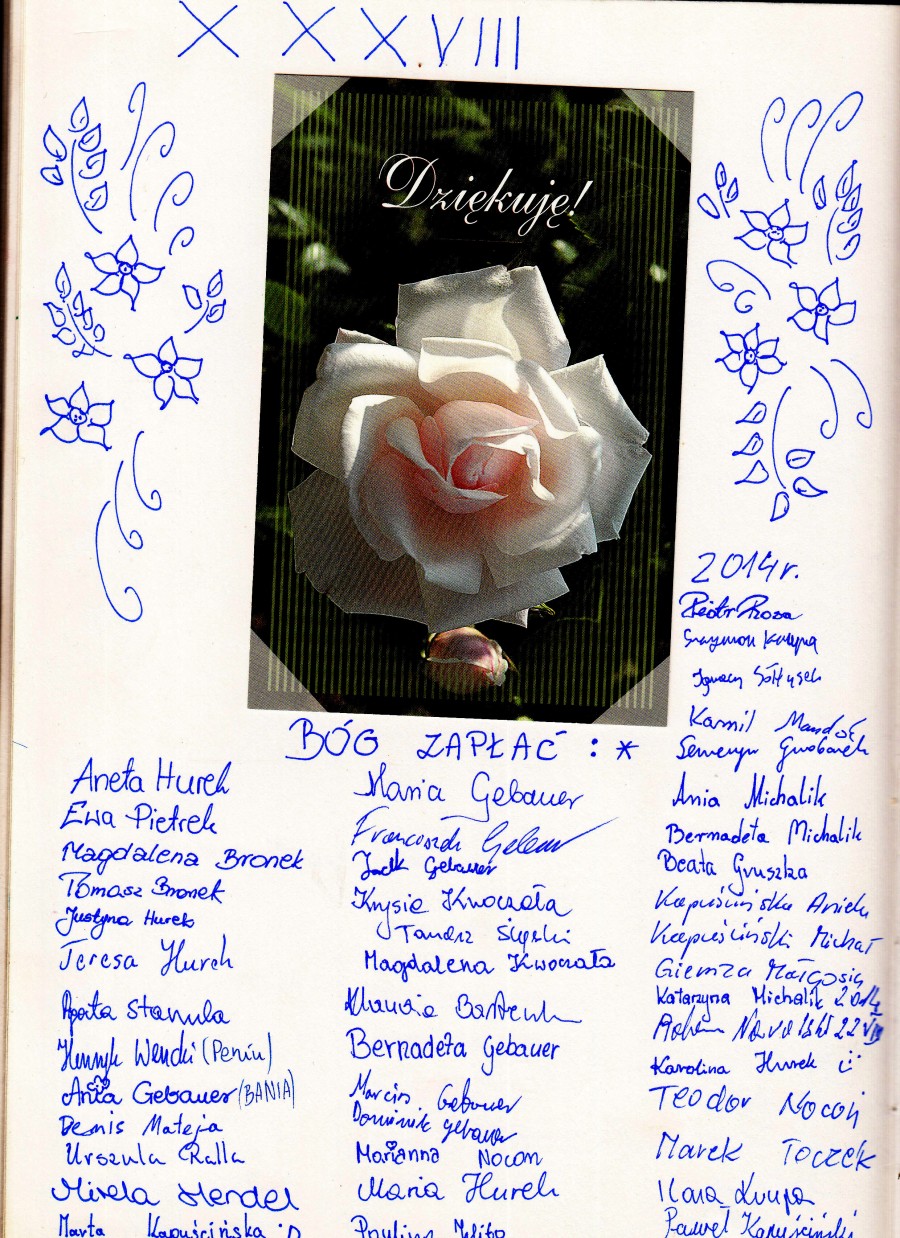 XXXVIII
Dziękuję!
BÓG ZAPŁAĆ : *
Aneta Hurek
Ewa Pietrek
Magdalena Bronek
Tomasz Bronek
Justyna Hurek
Teresa Hurek
Agata Stanula
Henryk Wencki (Peniu)
Ania Gebauer (BANIA)
Denis Mateja
Urszula Ralla
Mirela Hendel
Marta Kapuścińska :D
Maria Gebauer
Franciszek
Gebauer
Krysia Kwoczała
Tomasz
Magdalena Kwoczała
Klaudia
Bernadeta Gebauer
Marcin Gebauer
Dominik Gebauer
Marianna Nocoń
Maria Hurek
Paulina
2014r.
Piotr Roza
Szymon
Ignacy Sołtysek
Kamil
Seweryn
Ania Michalik
Bernadeta Michalik
Beata Gruszka
Kapuścińska Aniela
Kapuściński Michał
Giemza Małgosia
Katarzyna Michalik 2014
22 VIII
Karolina Hurek :)
Teodor Nocoń
Marek Toczek
Ilona Krupa
Paweł Kapuściński